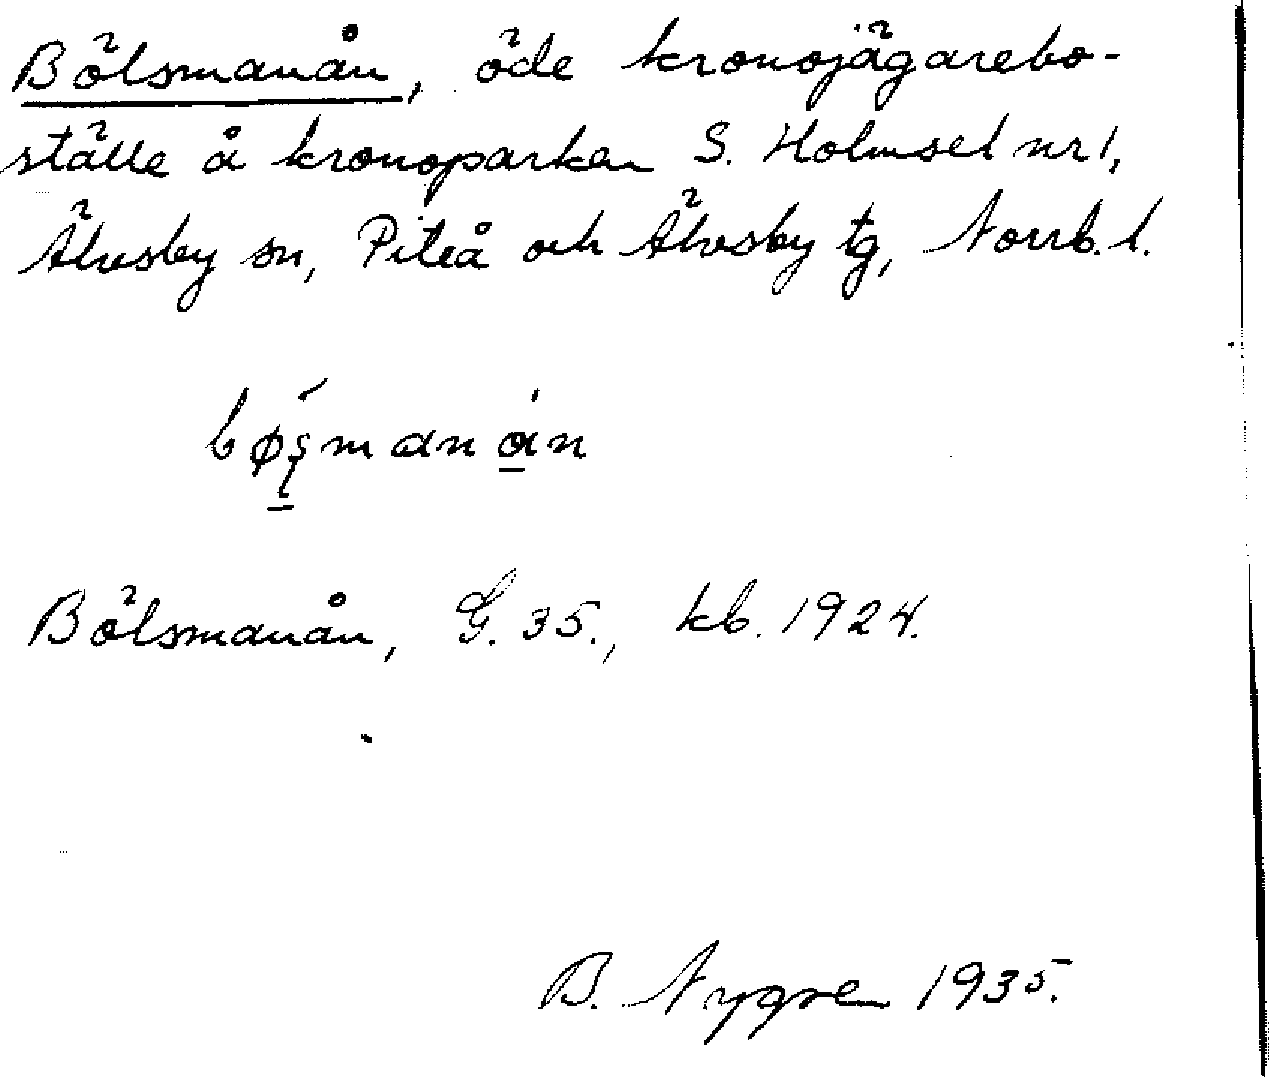 Bölsmanån, öde kronojägarebo-
ställe å kronoparken S. Holmsel nr 1,
Älvsby sn, Piteå och Älvsby tg, Norrb. l.
Bölsmanån, G. 35., kb. 1924.
B. Nygren 1935.